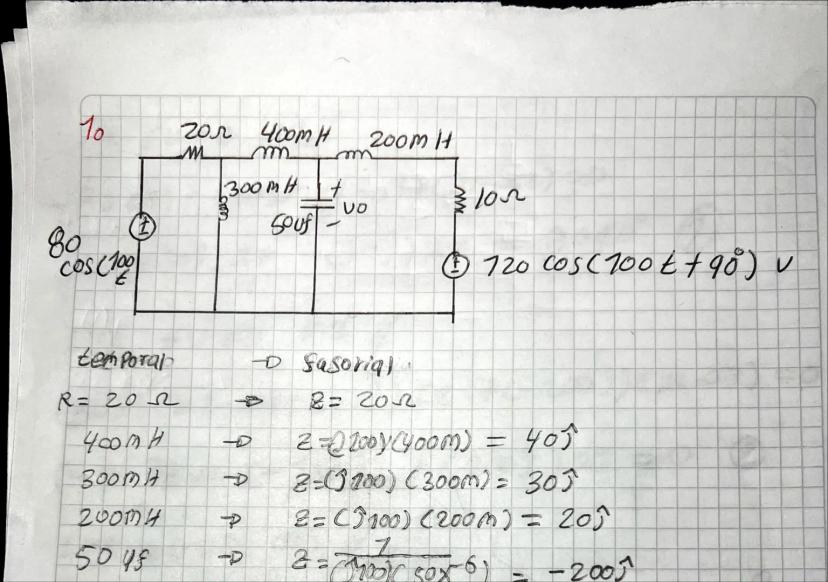 1.
20Ω 400mH 200mH
300mH + 10Ω
50uf - vo
80 cos(100t
120 cos(100t+90°) v
temporal → fasorial
R = 20Ω → Z = 20Ω
400mH → Z=(j100)(400m) = 40j
300mH → Z=(j100)(300m) = 30j
200mH → Z=(j100)(200m) = 20j
50uf → Z= 1/(j100)(50x-6) = -200j